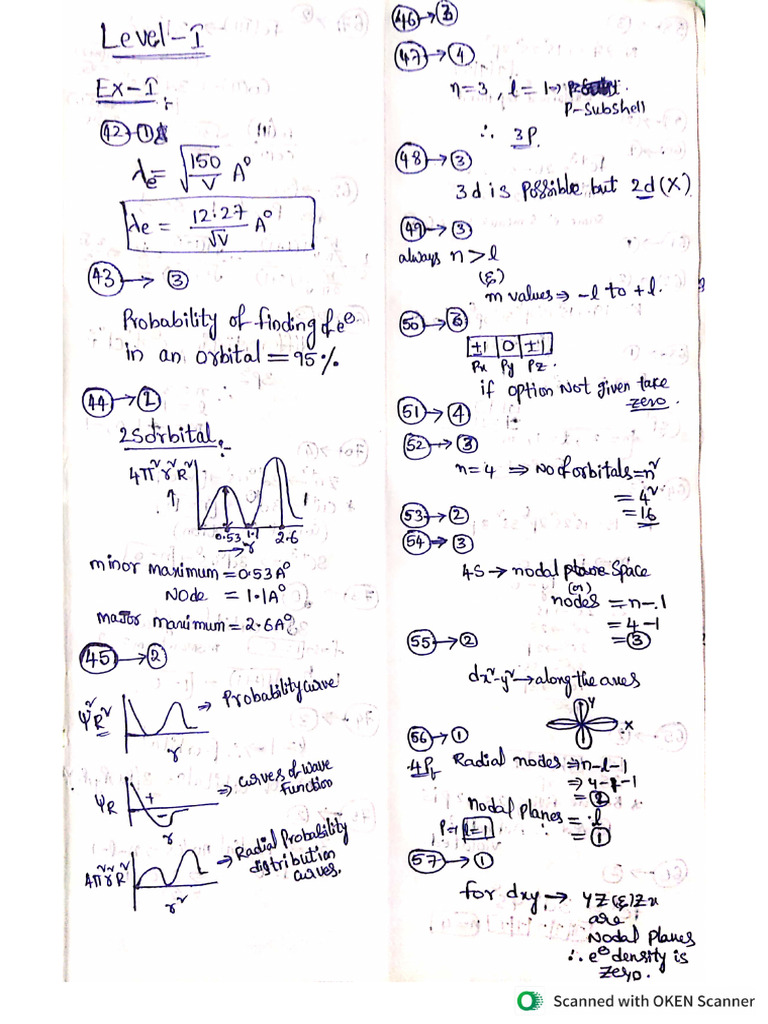 Level-I
Ex-I :-
42→1
λe = √150/V A°
λe = 12.27/√V A°
43 → 3
Probability of finding of e⊖
in an orbital = 95%
44 → 2
2S orbital :-
4π²r²R²
0.53 1.1 2.6
→ r
minor maximum = 0.53A°
Node = 1.1A°
Major maximum = 2.6A°
45 → 2
ψ²R² → Probability curve
r
ψR → curves of wave
Function
+ -
r
4π²r²R² → Radial Probability
distribution
curves.
r²
46 →
47 → 4
n=3, l = 1 →
P-Subshell
∴ 3P.
48 → 3
3d is possible but 2d (X)
49 → 3
always n > l
(ξ)
m values ⇒ -l to +l.
50 → 3
±1 0 ±1
Px Py Pz.
if option Not given take
zero.
51 → 4
52 → 3
n=4 ⇒ No of orbitals = n²
= 4²
= 16
53 → 2
54 → 3
4S → nodal Space
(or)
nodes = n-1
= 4-1
= 3
55 → 2
dx²-y² → along the axes
Y
X
56 → 1
4P, Radial nodes ⇒ n-l-1
⇒ 4-1-1
= 2
Nodal Planes = l
P→ l=1 = 1
57 → 1
for dxy, → YZ (ξ) Zx
are
Nodal Planes
∴ e⊖ density is
Zero.
Scanned with OKEN Scanner